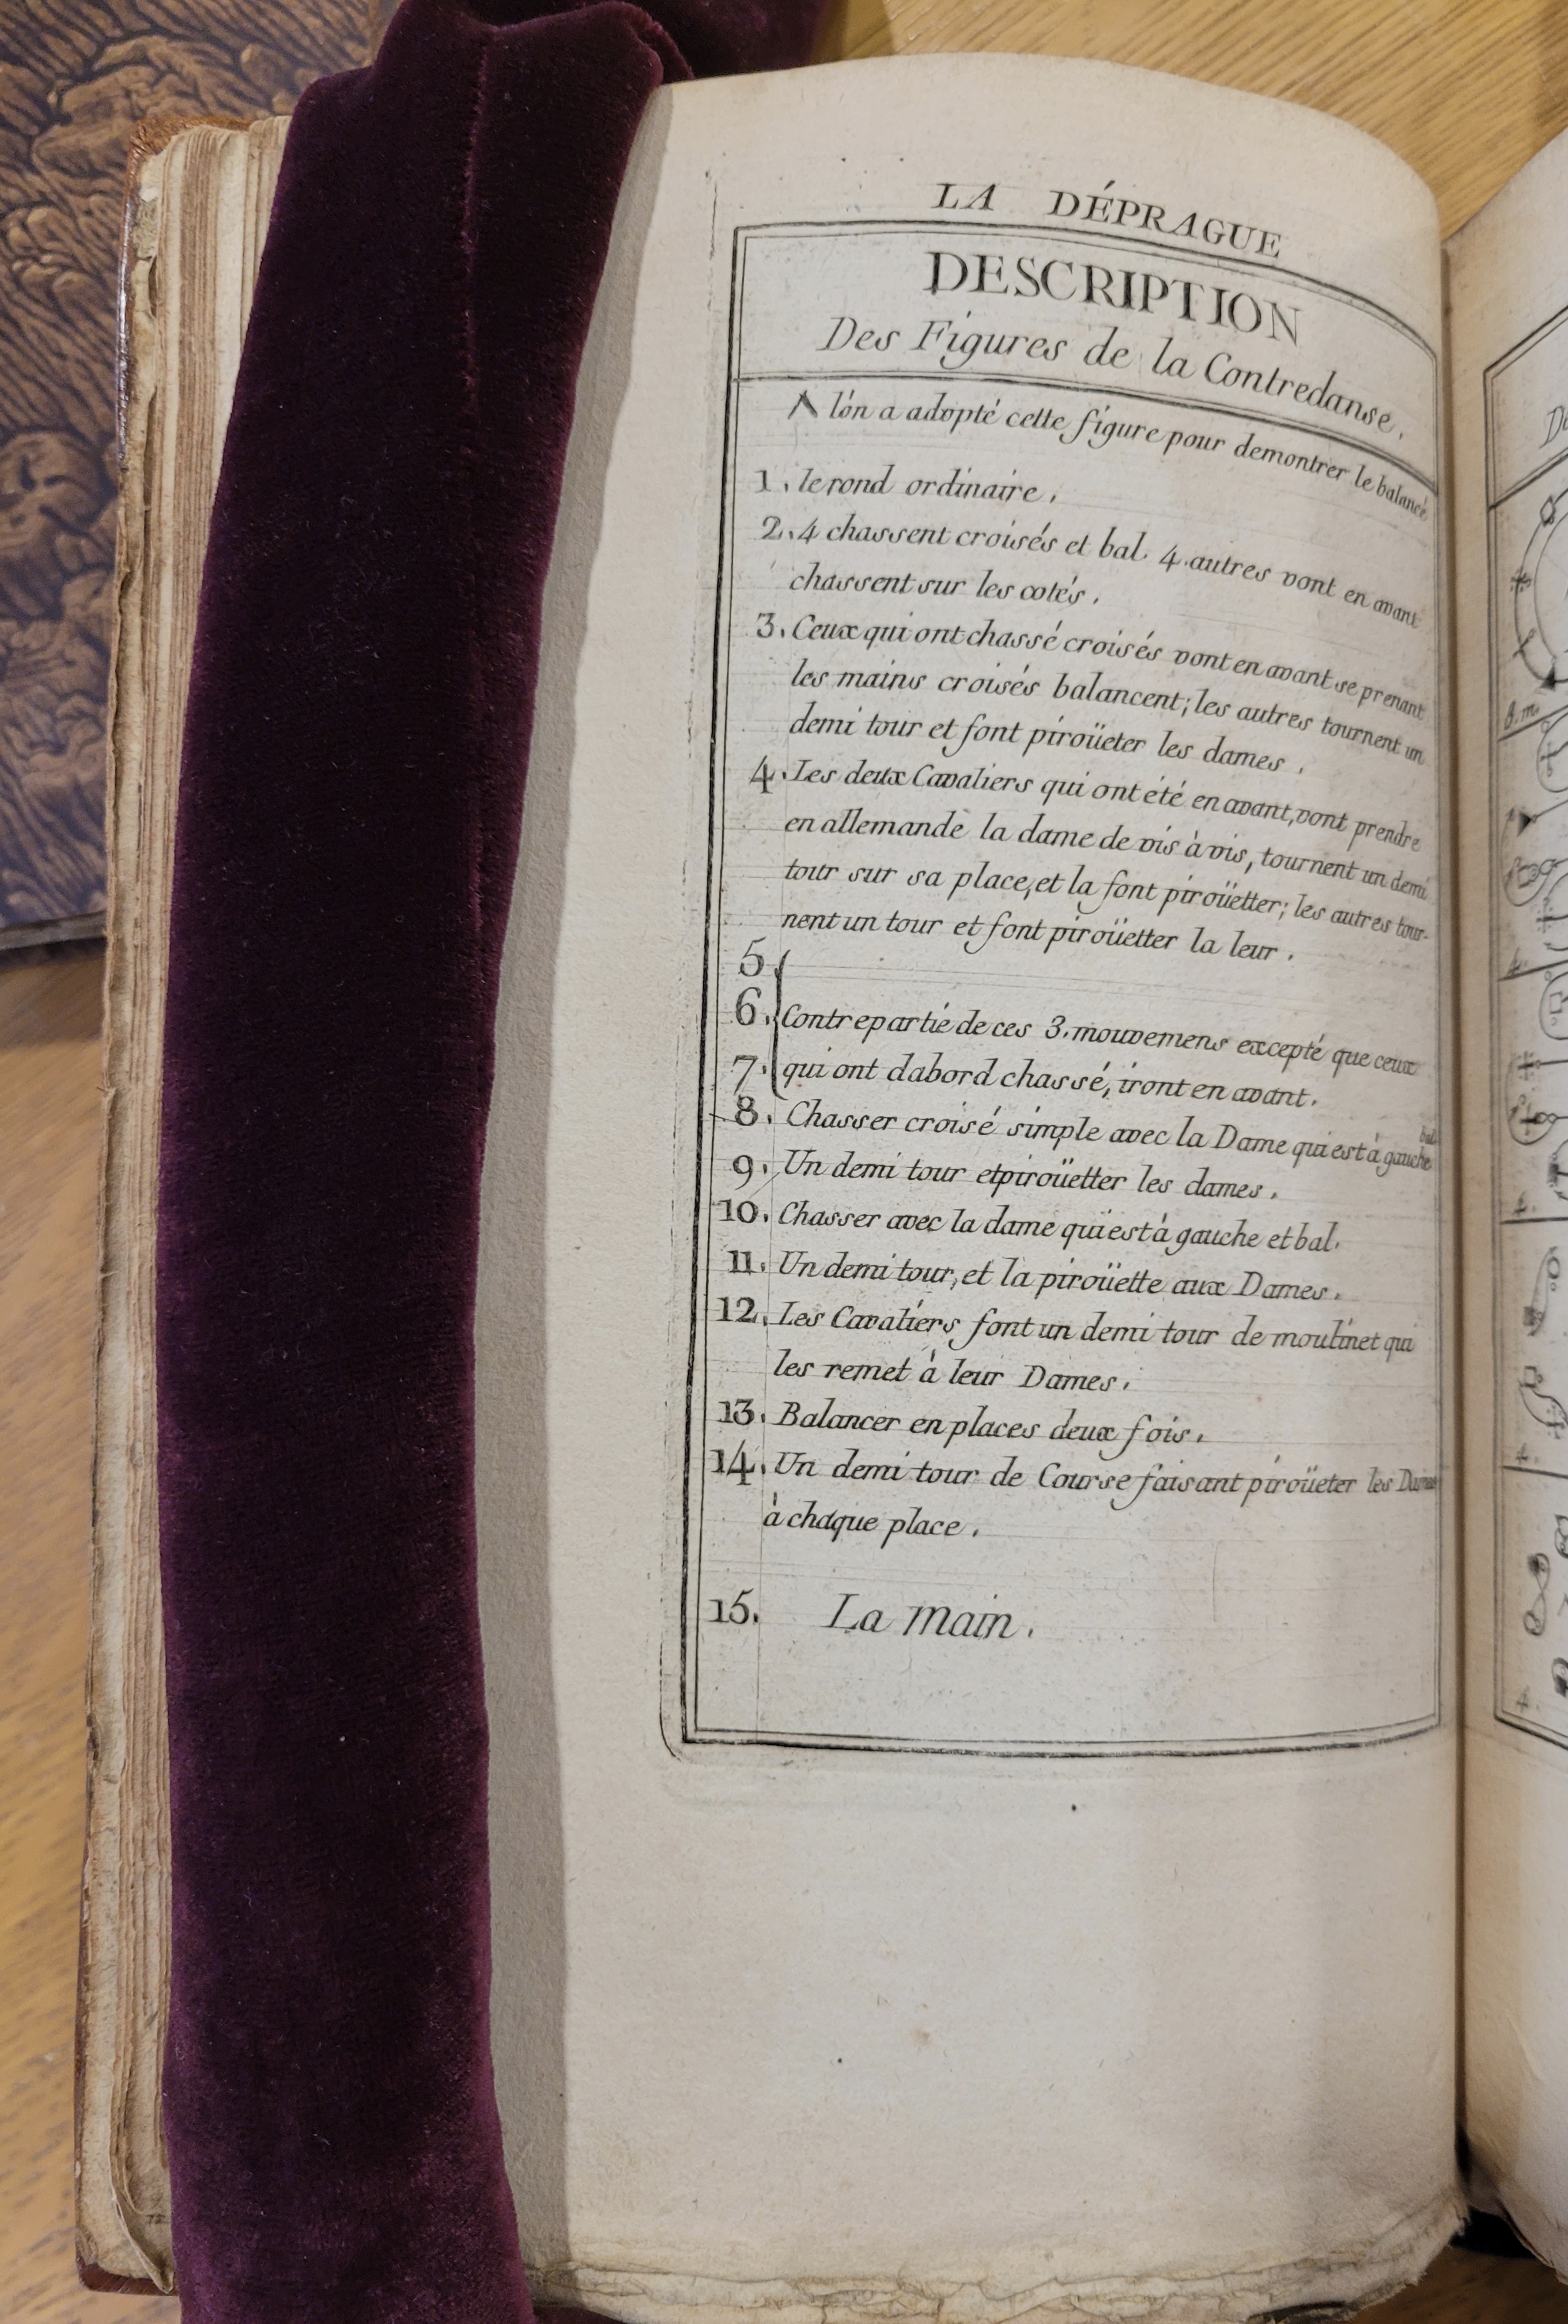 LA DÉPRAGUE
DESCRIPTION
Des Figures de la Contredanse.
Λ lón a adopté cette figure pour demontrer le balancé
1. le rond ordinaire.
2. 4 chassent croisés et bal. 4. autres vont en avant
chassent sur les cotés.
3. Ceux qui ont chassé croisés vont en avant se prenant
les mains croisés balancent; les autres tournent un
demi tour et font piroüeter les dames.
4. Les deux Cavaliers qui ont été en avant, vont prendre
en allemande la dame de vis à vis, tournent un demi
tour sur sa place, et la font piroüetter; les autres tour-
nent un tour et font piroüetter la leur.
5.
6. Contrepartié de ces 3. mouvemens excepté que ceux
7. qui ont dabord chassé, iront en avant.
8. Chasser croisé simple avec la Dame qui est à gauche bal.
9. Un demi tour et piroüetter les dames.
10. Chasser avec la dame qui est à gauche et bal.
11. Un demi tour, et la piroüette aux Dames.
12. Les Cavaliérs font un demi tour de moulinet qui
les remet à leur Dames.
13. Balancer en places deux fois.
14. Un demi tour de Course faisant piroüeter les Dames
à chaque place.
15. La main.